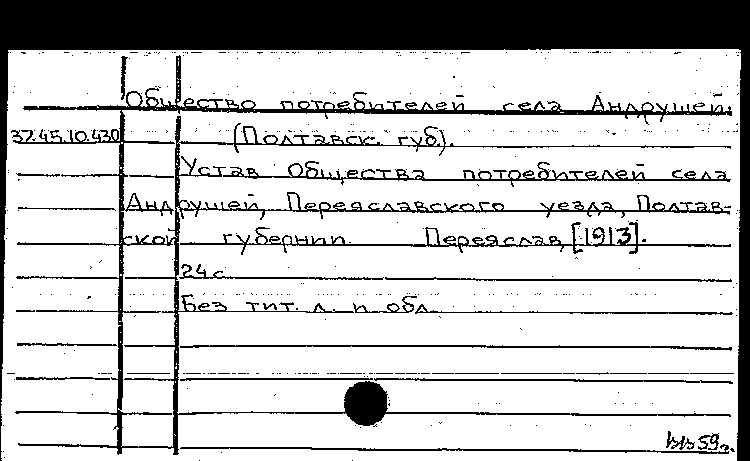 Общество потребителей села Андрушей.
37.45.10.430 (Полтавск. губ.).
Устав Общества потребителей села
Андрушей, Переяславского уезда, Полтав-
ской губернии. Переяслав, [1913].
24 с.
Без тит. л. и обл.
59г.